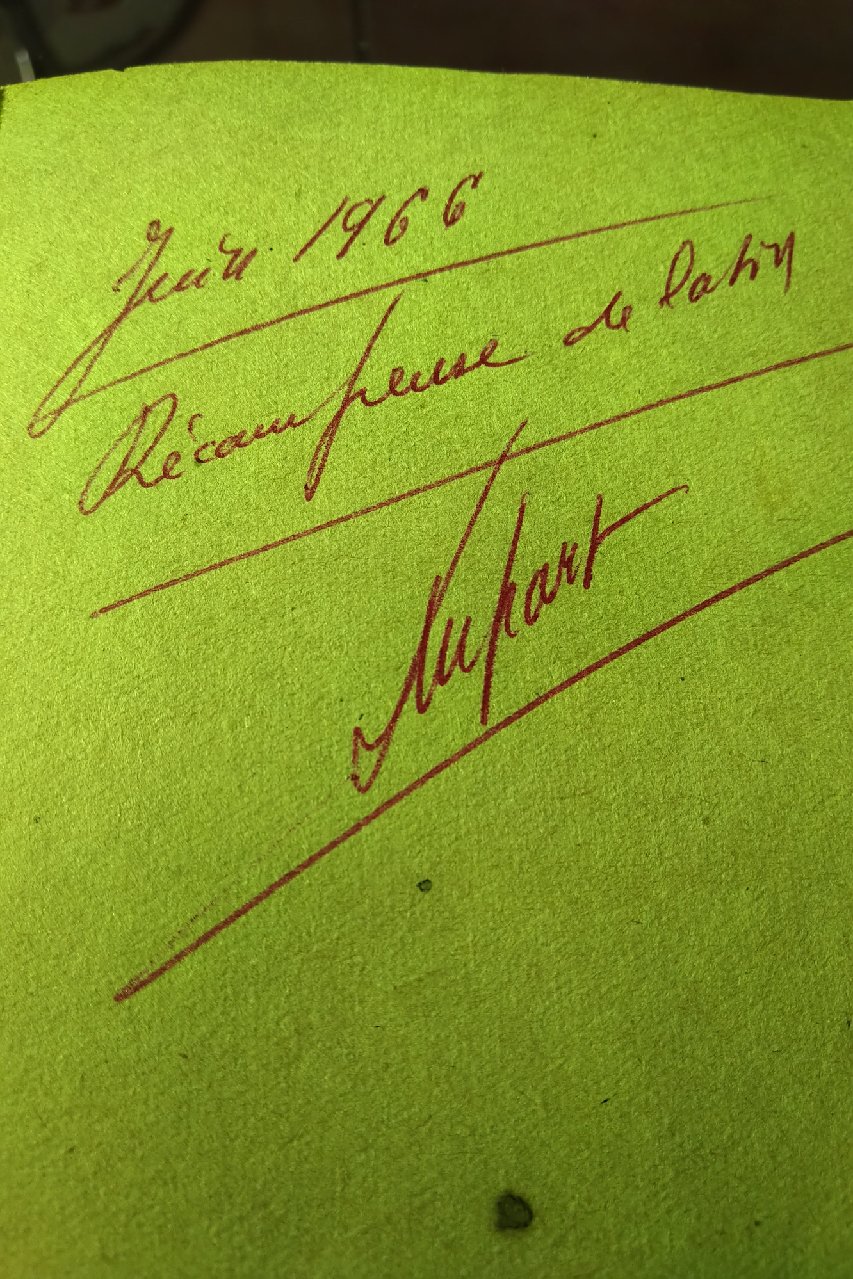 Juin 1966
Récompense de latin